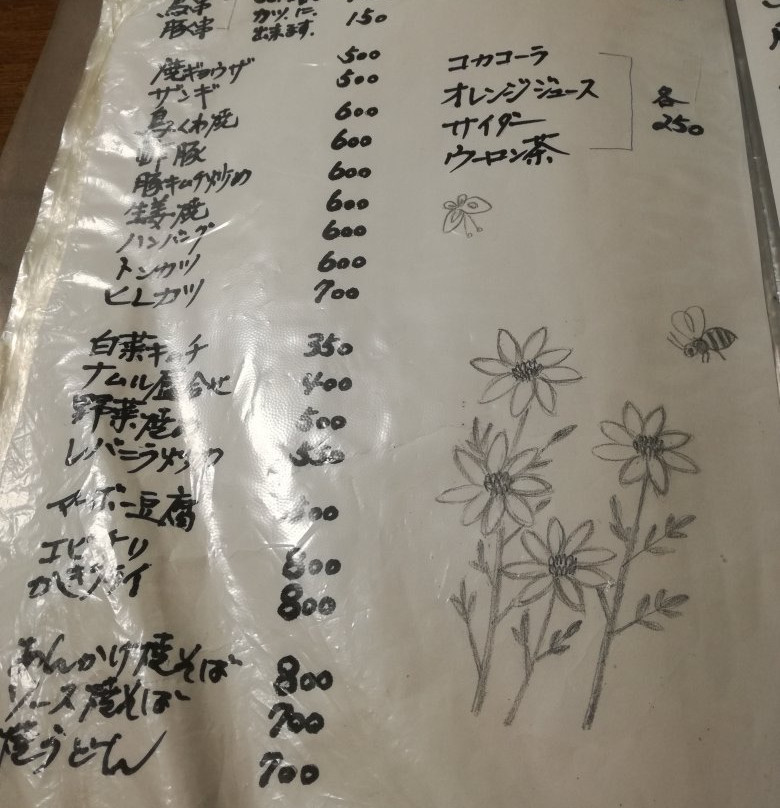 鳥串
豚串
カツに
出来ます.
150
焼ギョウザ 500
ザンギ 500
鳥くわ焼 600
酢豚 600
豚キムチ炒め 600
生姜焼 600
ハンバーグ 600
トンカツ 600
ヒレカツ 700
白菜キムチ 350
ナムル盛合せ 400
野菜焼 500
レバニラ炒め
マーボー豆腐
エビチリ 800
かきフライ 800
あんかけ焼そば 800
ソース焼そば 700
焼うどん 700
コカコーラ
オレンジジュース
サイダー
ウーロン茶
各
250